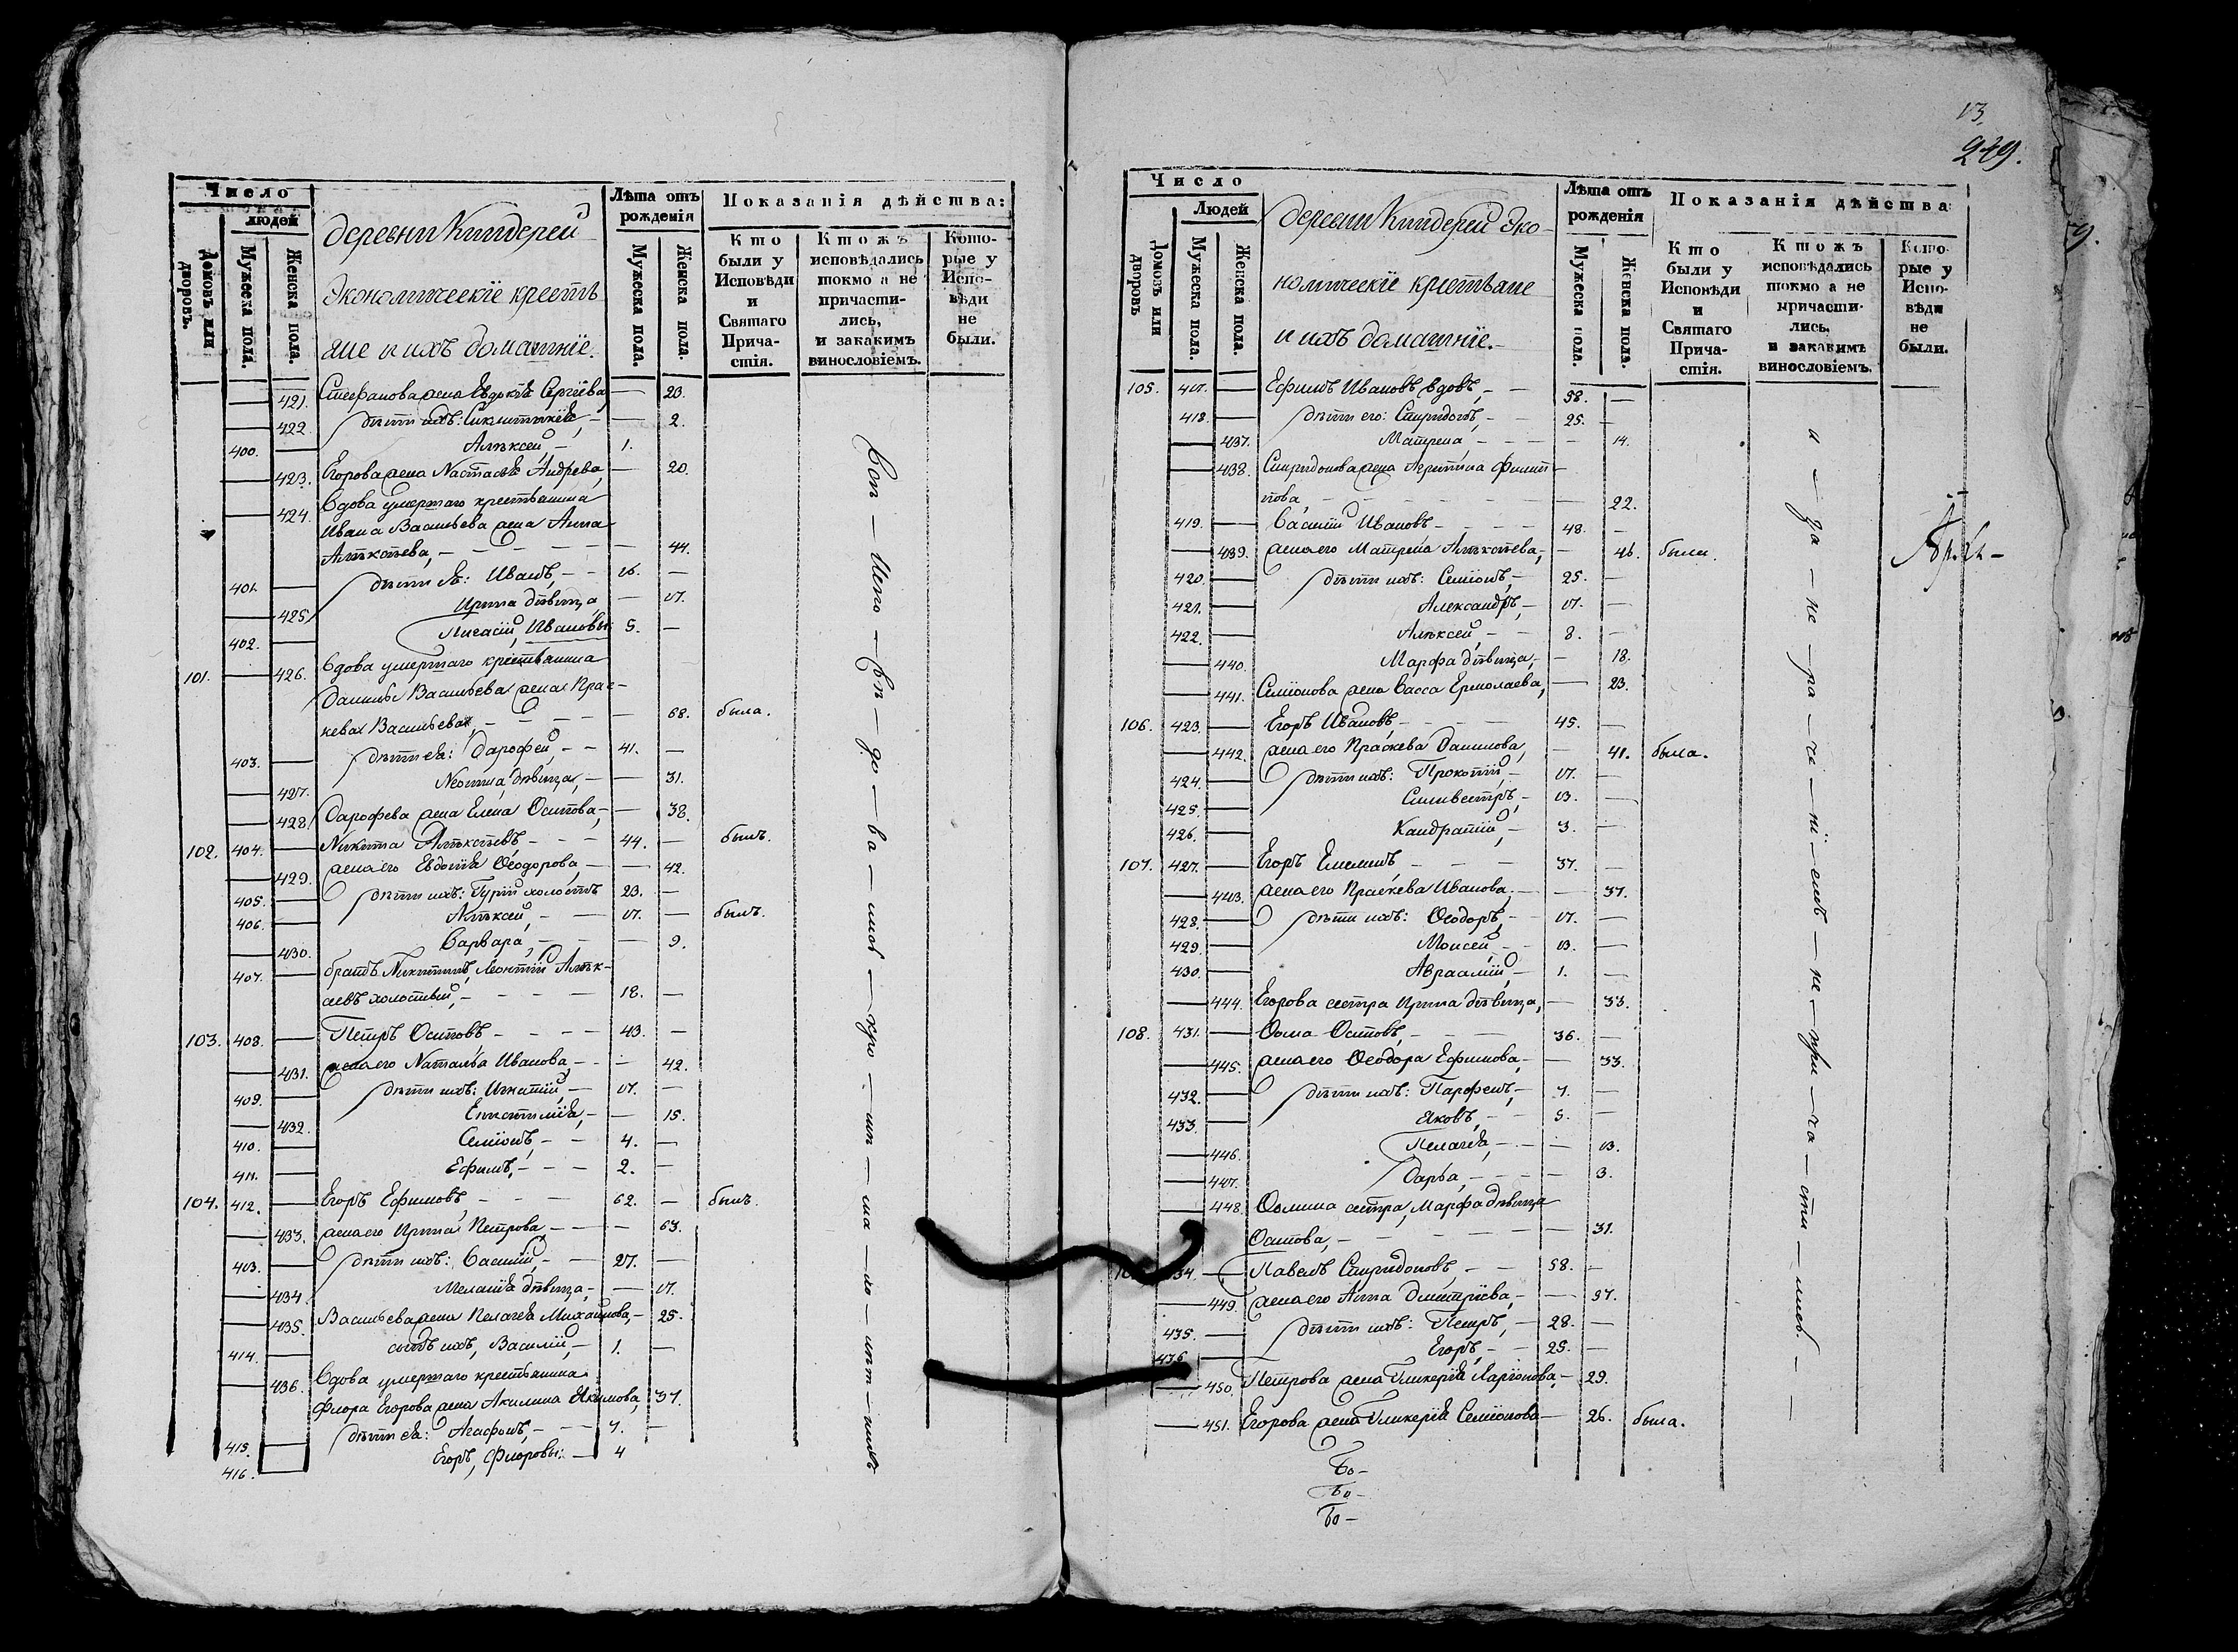 Число
людей
Домовъ или дворовъ.
Мужеска пола.
Женска пола.
деревни Киндерей
экономическіе крестья
яне и ихъ домашніе.
Лѣта отъ рожденія
Мужеска пола.
Женска пола.
Показанія дѣйства:
Кто были у Исповѣди и Святаго Причастія.
Ктожъ исповѣдались токмо а не причастились, и закакимъ винословіемъ.
Которые у Исповѣди не были.
421. Стефанова жена Евдокѣя Сергѣева — 23.
422. дѣти ихъ: — 2.
400. Алѣксей 1.
423. Егорова жена Настасѣя Андрева, — 20.
424. Вдова умершаго крестьянина
Ивана Васильева жена Анна
Алѣксѣева, — 44.
401. дѣти ея: Иванъ, — 16. —
425. Ирина дѣвица, — 17.
402. Ивановы 5. —
101. 426. Вдова умершаго крестьянина
Данилы Васильева жена Прас-
кева Васильева, — 68. была.
403. дѣти ея: Дарофей, — 41. —
427. Неонила дѣвица, — 31.
428. Дарофева жена Елена Осипова, — 38.
102. 404. Никита Алѣксѣевъ, — 44. — былъ.
429. жена его Евдокія Ѳеодорова, — 42.
405. дѣти ихъ: Гурій холостъ 23. —
406. Алѣксей, — 17. — былъ.
430. Варвара, — 9.
407. братъ Никитинъ, Леонтій Алѣк-
аевъ холостый, — 18. —
103. 408. Петръ Осиповъ — 43. —
431. жена его Наталья Иванова, — 42.
409. дѣти ихъ: Игнатій, — 17. —
432. — 15.
410. Семіонъ, — 4. —
411. Ефимъ, — 2. —
104. 412. Егоръ Ефимовъ, — 62. — былъ.
433. жена его Ирина Петрова, — 63.
413. дѣти ихъ: Василій, — 27. —
434. Меланія дѣвица, — 17.
435. Васильева жена Пелагея Михайлова, — 25.
414. сынъ ихъ, Василій, — 1. —
436. Вдова умершаго крестьянина
Флора Егорова жена Акилина Якимова, 37.
415. дѣти ея: Агафонъ, — 7. —
416. Егоръ, Флоровы: — 4
13.
249.
Число
Людей
Домовъ или дворовъ
Мужеска пола.
Женска пола.
деревни Киндерей Эко-
номическіе крестьяне
и ихъ домашніе.
Лѣта отъ рожденія
Мужеска пола.
Женска пола.
Показанія дѣйства
Кто были у Исповѣди и Святаго Причастія.
Ктожъ исповѣдались токмо а не причастились, и закакимъ винословіемъ.
Которые у Исповѣди не были.
105. 417. Ефимъ Ивановъ вдовъ, — 58. —
418. дѣти его: Спиридонъ, — 25. —
437. Матрена — 14.
438. Спиридонова жена Агрипина Филип-
пова, — 22.
419. Василій Ивановъ — 48. —
439. жена его Матрена Алѣксѣева, — 46. были.
420. дѣти ихъ: Семіонъ, — 25. —
421. Александръ, — 17. —
422. Алѣксей, — 8. —
440. Марфа дѣвица, — 18.
441. Семіонова жена Васса Ермолаева, — 23.
106. 423. Егоръ Ивановъ, — 45. —
442. жена его Праскева Данилова, — 41. была.
424. дѣти ихъ: Прокопій, — 17. —
425. Силивестръ, — 13. —
426. Кандратій, — 3. —
107. 427. Егоръ Емелинъ, — 37. —
443. жена его Праскева Иванова, — 37.
428. дѣти ихъ: Ѳеодоръ, — 17. —
429. Моисей, — 13. —
430. Авраамій, — 1. —
444. Егорова сестра Ирина дѣвица, — 33.
108. 431. Ѳома Осиповъ, — 36. —
445. жена его Ѳеодора Ефимова, — 33.
432. дѣти ихъ: Парфенъ, — 7. —
433. Яковъ, — 5. —
446. Пелагея, — 13.
447. Дарья, — 3.
448. Ѳомина сестра, Марфа дѣвица
Осипова, — 31.
434. Павелъ Спиридоновъ, — 58. —
449. жена его Анна Дмитріева, — 57.
435. дѣти ихъ: Петръ, — 28. —
436. Егоръ, — 25. —
450. Петрова жена Гликерія Ларіонова, — 29.
451. Егорова жена Гликерія Семіонова — 26. была.
Бо-
Бо-
Бо-
а — за — не — ра — че — ні — емъ — не — при — ча — сти — лись. —